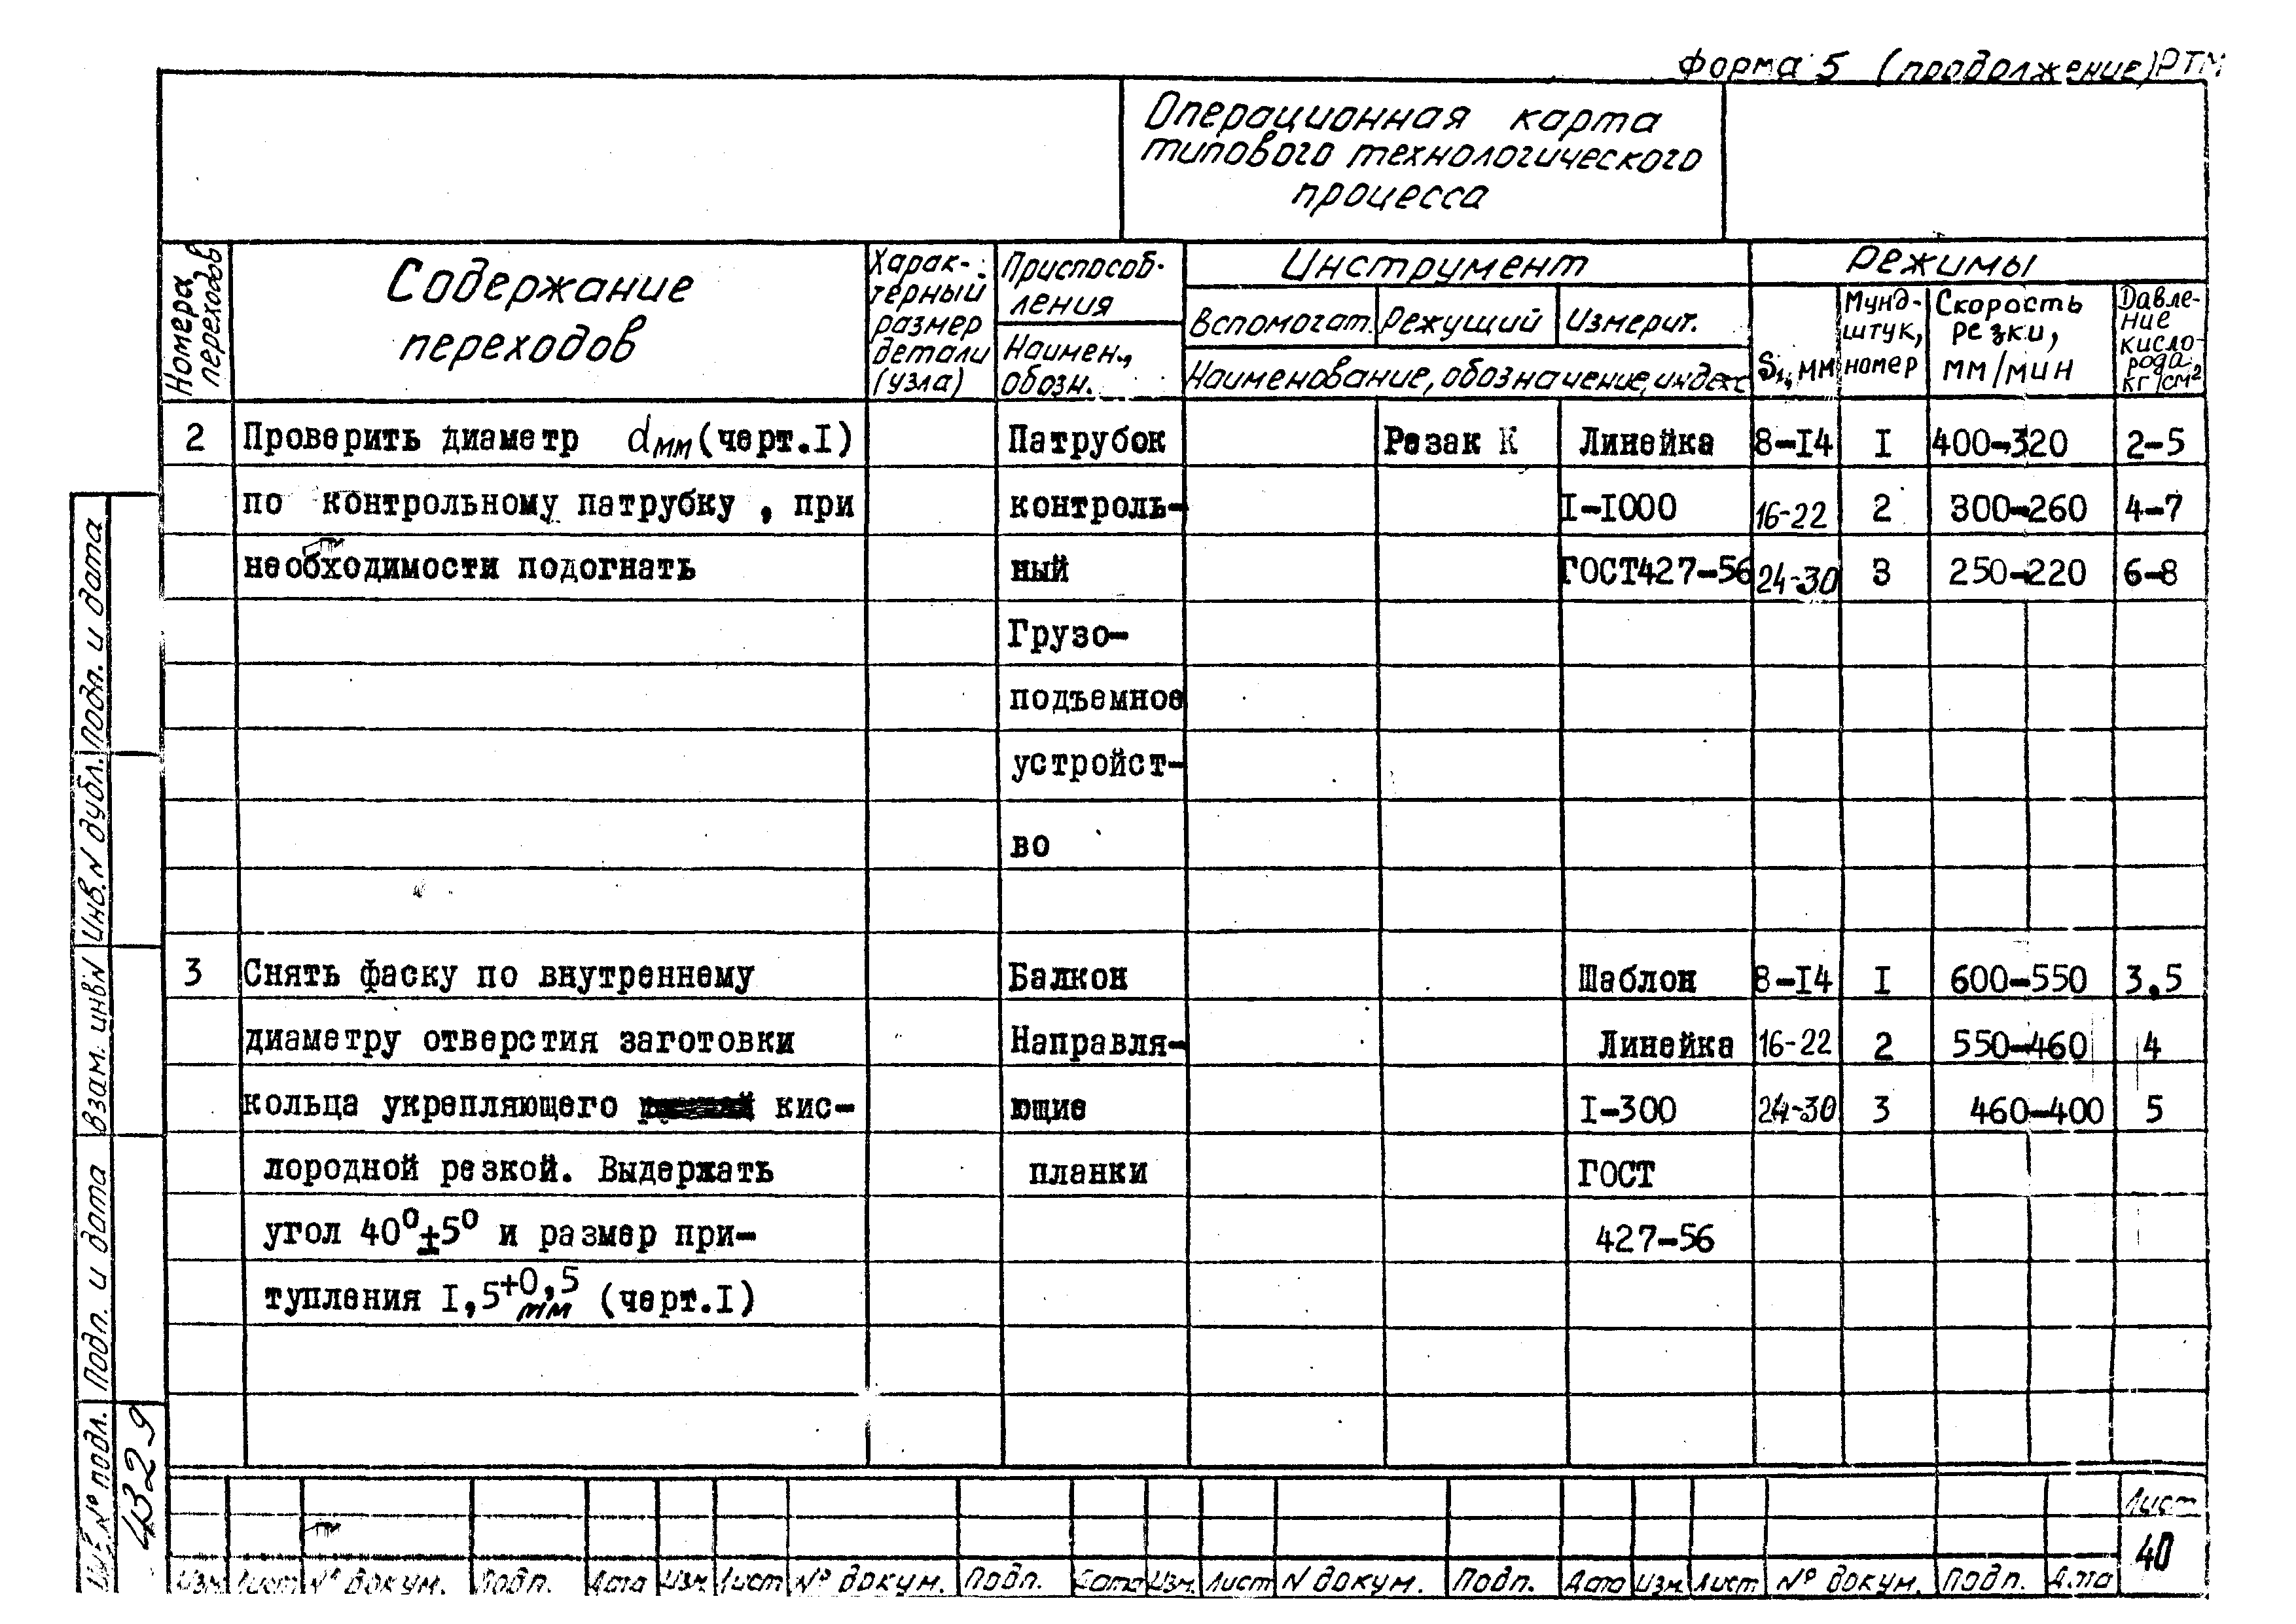 Форма 5 (продолжение) РТМ
Операционная карта
типового технологического
процесса
Номера переходов
Содержание
переходов
Харак-
терный
размер
детали
(узла)
Приспособ-
ления
Наимен.,
обозн.
Инструмент
Вспомогат. Режущий Измерит.
Наименование, обозначение, индекс
Режимы
S1, мм
Мунд-
штук,
номер
Скорость
резки,
мм/мин
Давле-
ние
кисло-
рода
кг/см²
2 Проверить диаметр dмм (черт.I) Патрубок Резак К Линейка 8-I4 I 400-320 2-5
по контрольному патрубку, при контроль- I-I000 16-22 2 300-260 4-7
необходимости подогнать ный ГОСТ427-56 24-30 3 250-220 6-8
Грузо-
подъемное
устройст-
во
3 Снять фаску по внутреннему Балкон Шаблон 8-I4 I 600-550 3,5
диаметру отверстия заготовки Направля- Линейка 16-22 2 550-460 4
кольца укрепляющего кис- ющие I-300 24-30 3 460-400 5
лородной резкой. Выдержать планки ГОСТ
угол 40°±5° и размер при- 427-56
тупления I,5+0,5 мм (черт.I)
Подп. и дата
Инв. N дубл.
Взам. инв N
Подп. и дата
Инв. № подл.
4329
Лист
40
Изм. Лист № докум. Подп. Дата Изм. Лист № докум. Подп. Дата Изм. Лист N докум. Подп. Дата Изм. Лист № докум. Подп. Дата